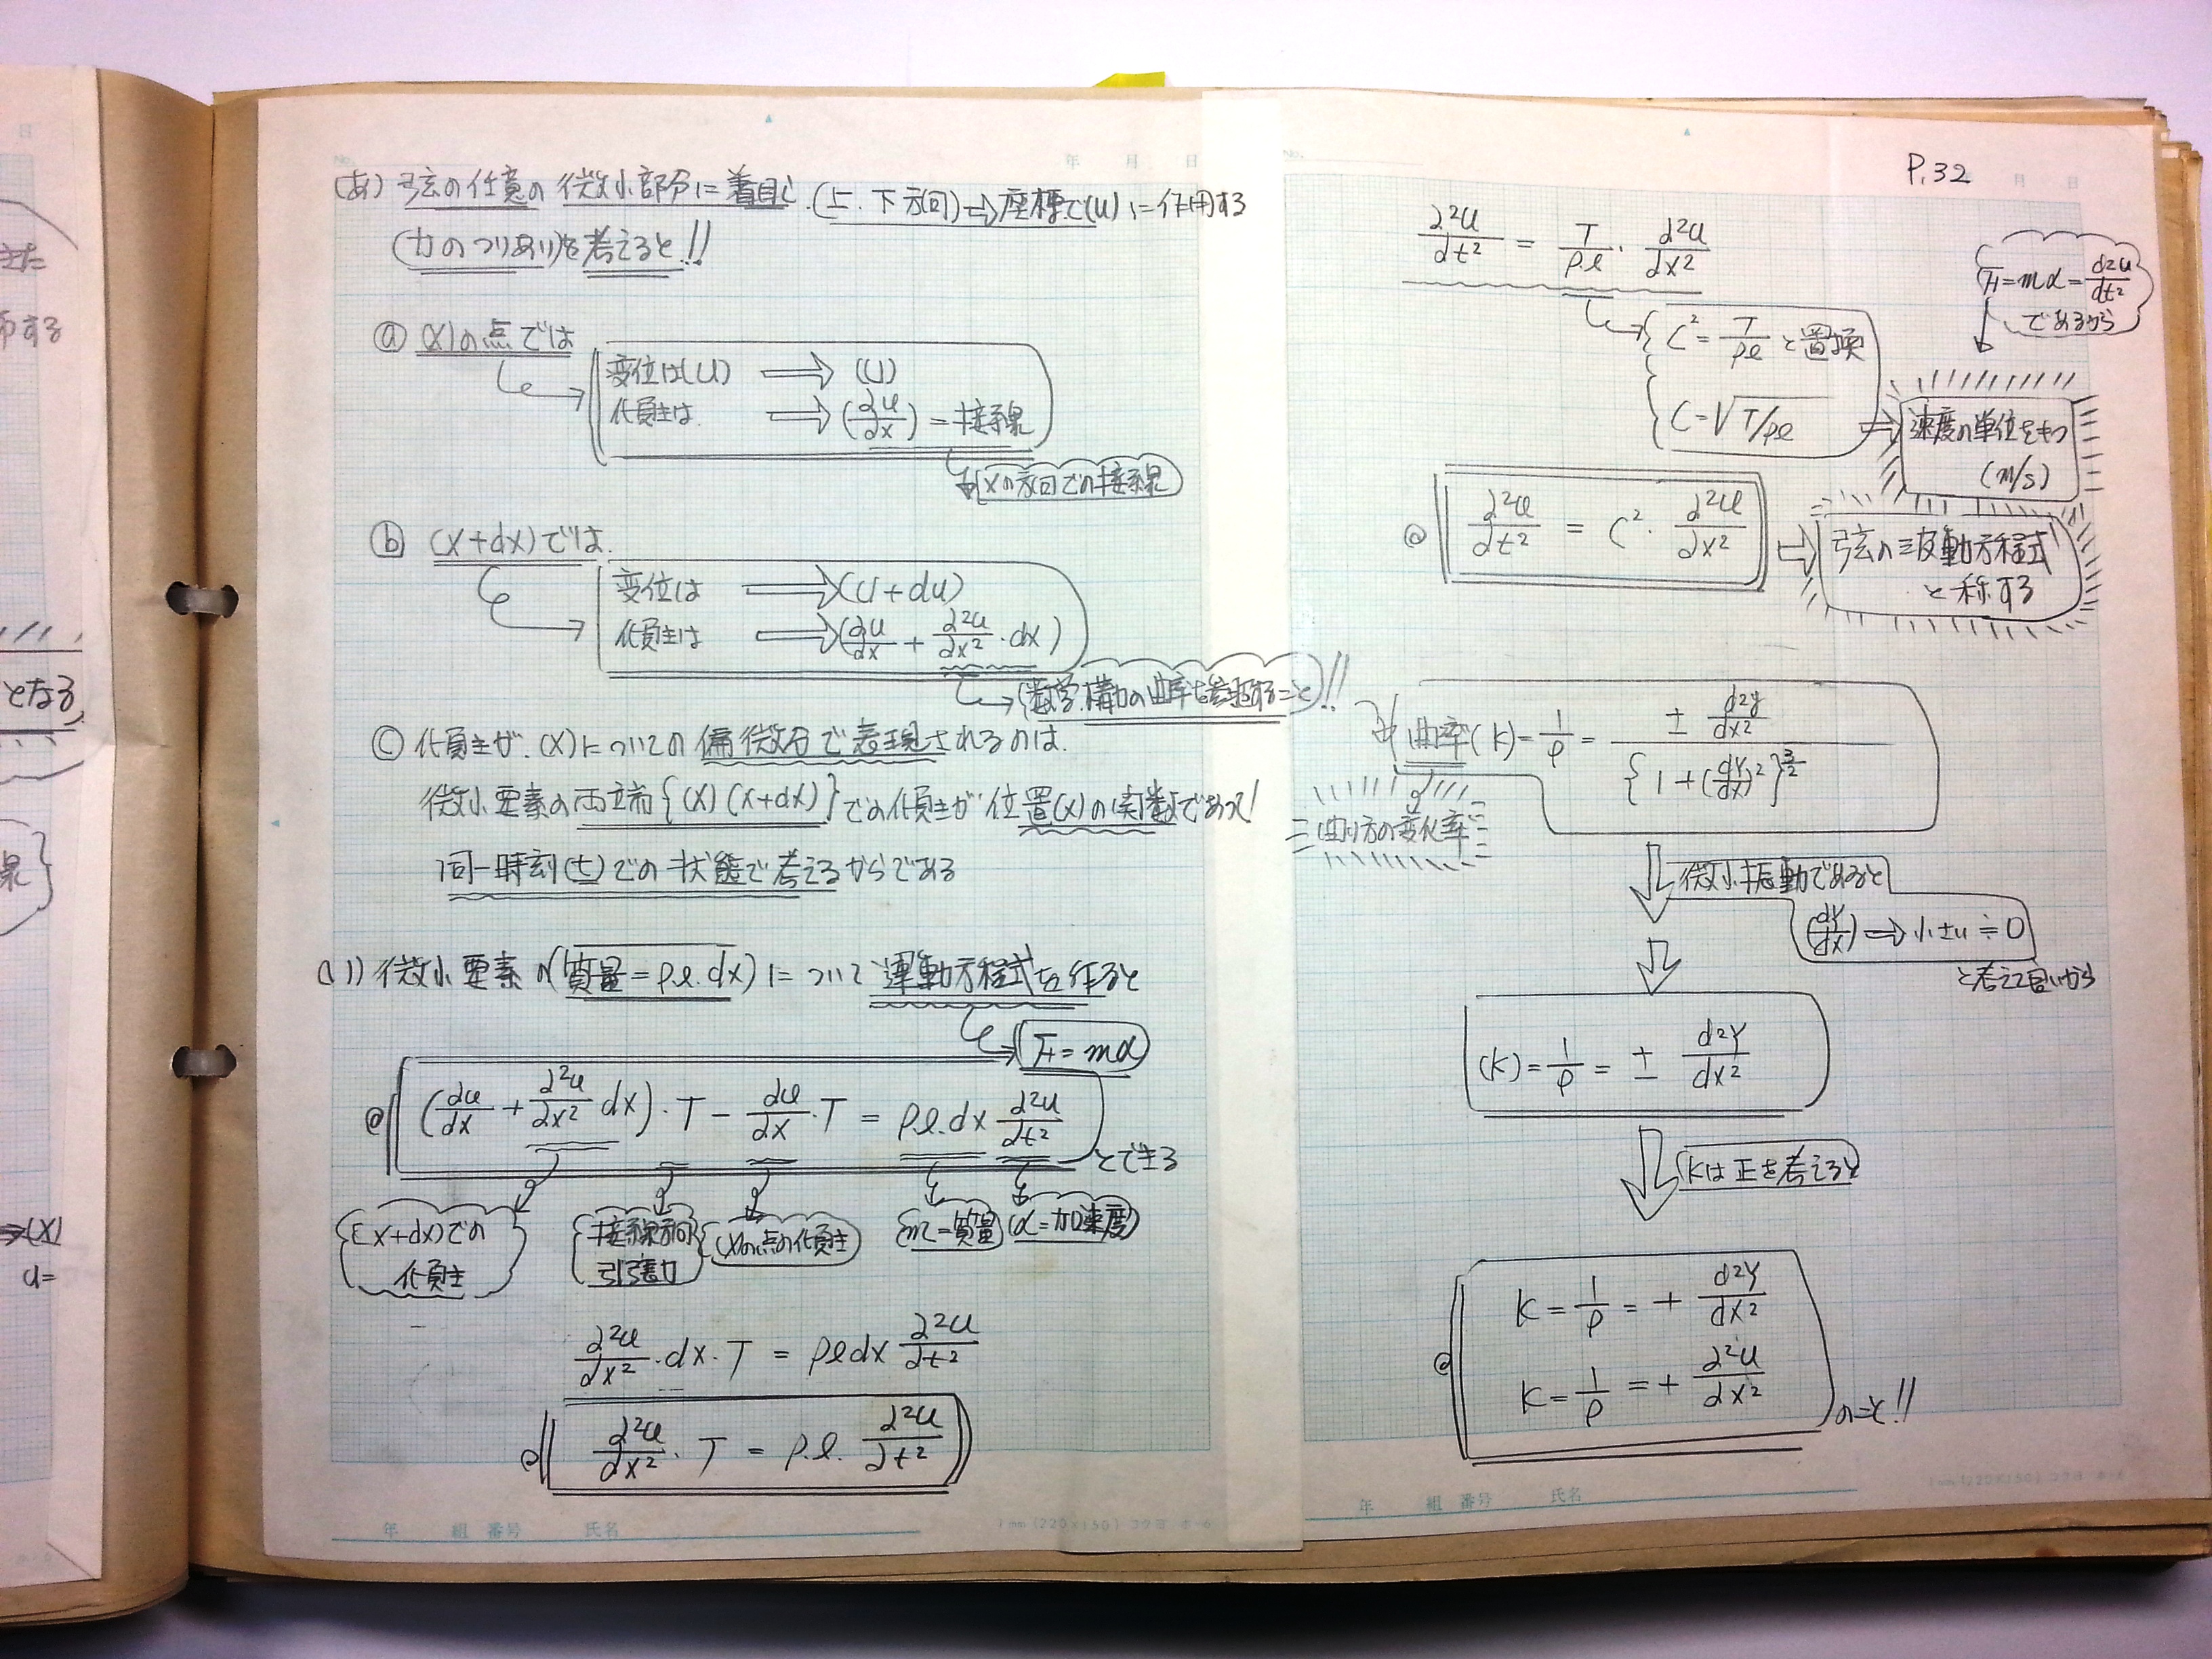 No. 年 月 日
(あ) 弦の任意の微小部分に着目し.(上.下方向)⇒座標で(u)に作用する
(力のつりあい)を考えると!!
ⓐ (x)の点では
変位は(u) ⇒ (u)
傾きは ⇒ (∂u/∂x) = 接線
(xの方向での接線)
ⓑ (x+dx)では.
変位は ⇒ (u+du)
傾きは ⇒ (∂u/∂x + ∂²u/∂x²・dx)
(数学.構力の曲率を参照すること)!!
ⓒ 傾きが.(x)についての偏微分で表現されるのは.
微小要素の両端{(x)(x+dx)}での傾きが位置(x)の関数であって!
同一時刻(t)での状態で考えるからである
(い) 微小要素の(質量=ρl.dx)について運動方程式を作ると
F=mα
@ (∂u/∂x + ∂²u/∂x² dx)・T − ∂u/∂x・T = ρl.dx ∂²u/∂t² とできる
(x+dx)での
傾き
接線方向
引張力
(x)の点の傾き
m=質量
(α=加速度)
∂²u/∂x²・dx・T = ρldx ∂²u/∂t²
@ ∂²u/∂x²・T = ρ.l. ∂²u/∂t²
年 組 番号 氏名
1mm(220×150) コクヨ ホ-6
No. 月 日
P.32
∂²u/∂t² = T/ρl・∂²u/∂x²
F=mα=d²u/dt²
であるから
C² = T/ρl と置換
C=√T/ρl
速度の単位をもつ
(m/s)
@ ∂²u/∂t² = C²・∂²u/∂x²
弦の波動方程式
と称する
曲率(K)=1/ρ = ± d²y/dx² / {1+(dy/dx)²}^3/2
曲り方の変化率
微小振動であると
(dy/dx) ⇒ 小さい ≒ 0
と考えて良いから
(K)=1/ρ = ± d²y/dx²
Kは正を考えると
K=1/ρ=+ d²y/dx²
@ K=1/ρ=+ ∂²u/∂x² のこと!!
年 組 番号 氏名
1mm(220×150) コクヨ ホ-6
となる
⇒(x)
u=